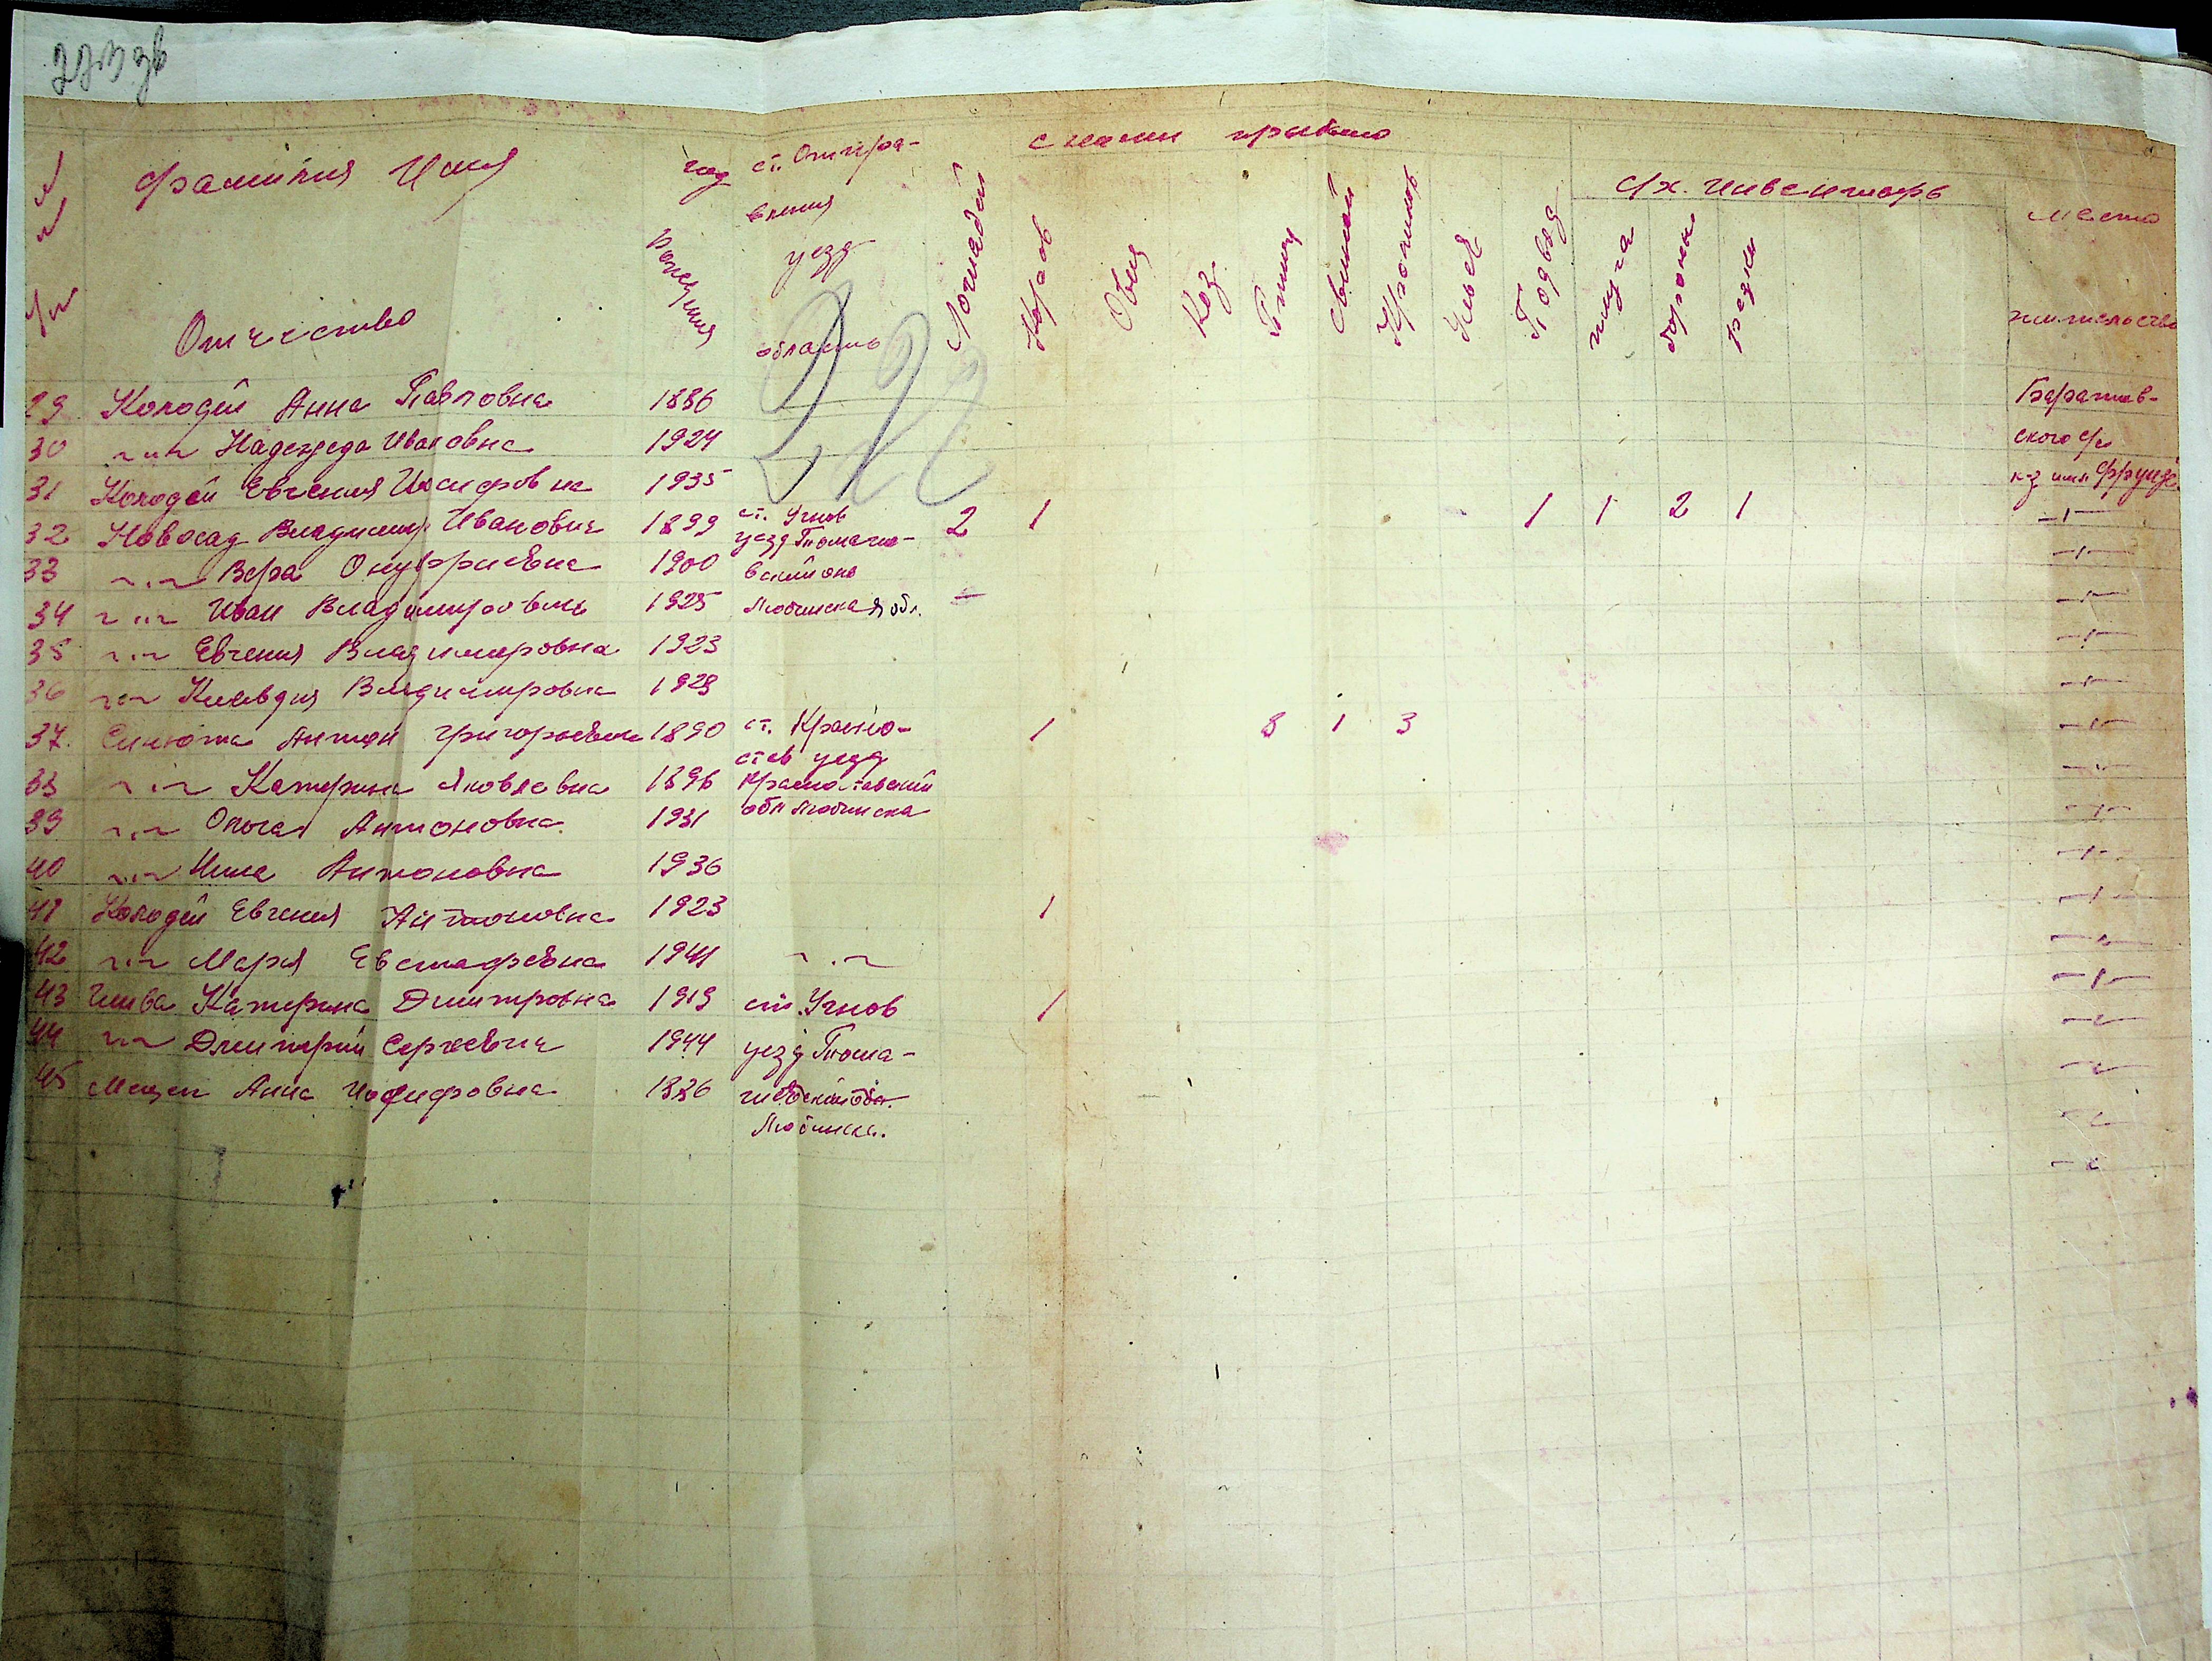 с ними прибыло
№ п/п Фамилия Имя Отчество год рождения ст. Отправления уезд область Лошадей Коров Овец Коз Птиц Свиней Кроликов Ульев Подвод с/х. инвентарь плуга бороны место жительства
222
29 Колодей Анна Павловна 1886 Баратов-
30 -"- Надежда Ивановна 1924 ского с/с
31 Колодей Евгения Иосифовна 1935 к-з имя Фрунзе
32 Новосад Владимир Иванович 1899 ст. Угнов 2 1 1 1 2 1 -"-
уезд Томаше-
33 -"- Вера Онуфриевна 1900 -"-
34 -"- Иван Владимирович 1925 Люблинская обл. -"-
35 -"- Евгения Владимировна 1923 -"-
36 -"- Клавдия Владимировна 1928 -"-
37. Синюта Антон Григорьевич 1890 ст. Красно- 1 8 1 3 -"-
став уезд
38 -"- Катерина Яковлевна 1896 Красноставский -"-
39 -"- Ольга Антоновна 1931 обл Люблинска -"-
40 -"- Нина Антоновна 1936 -"-
41 Колодей Евгения Антоновна 1923 1 -"-
42 -"- Мария Евстафевна 1941 -"- -"-
43 Катерина Дмитровна 1919 ст. Угнов 1 -"-
44 -"- Дмитрий Сергеевич 1944 уезд Тома- -"-
45 Анна Иосифовна 1886 -"-
Люблинска.